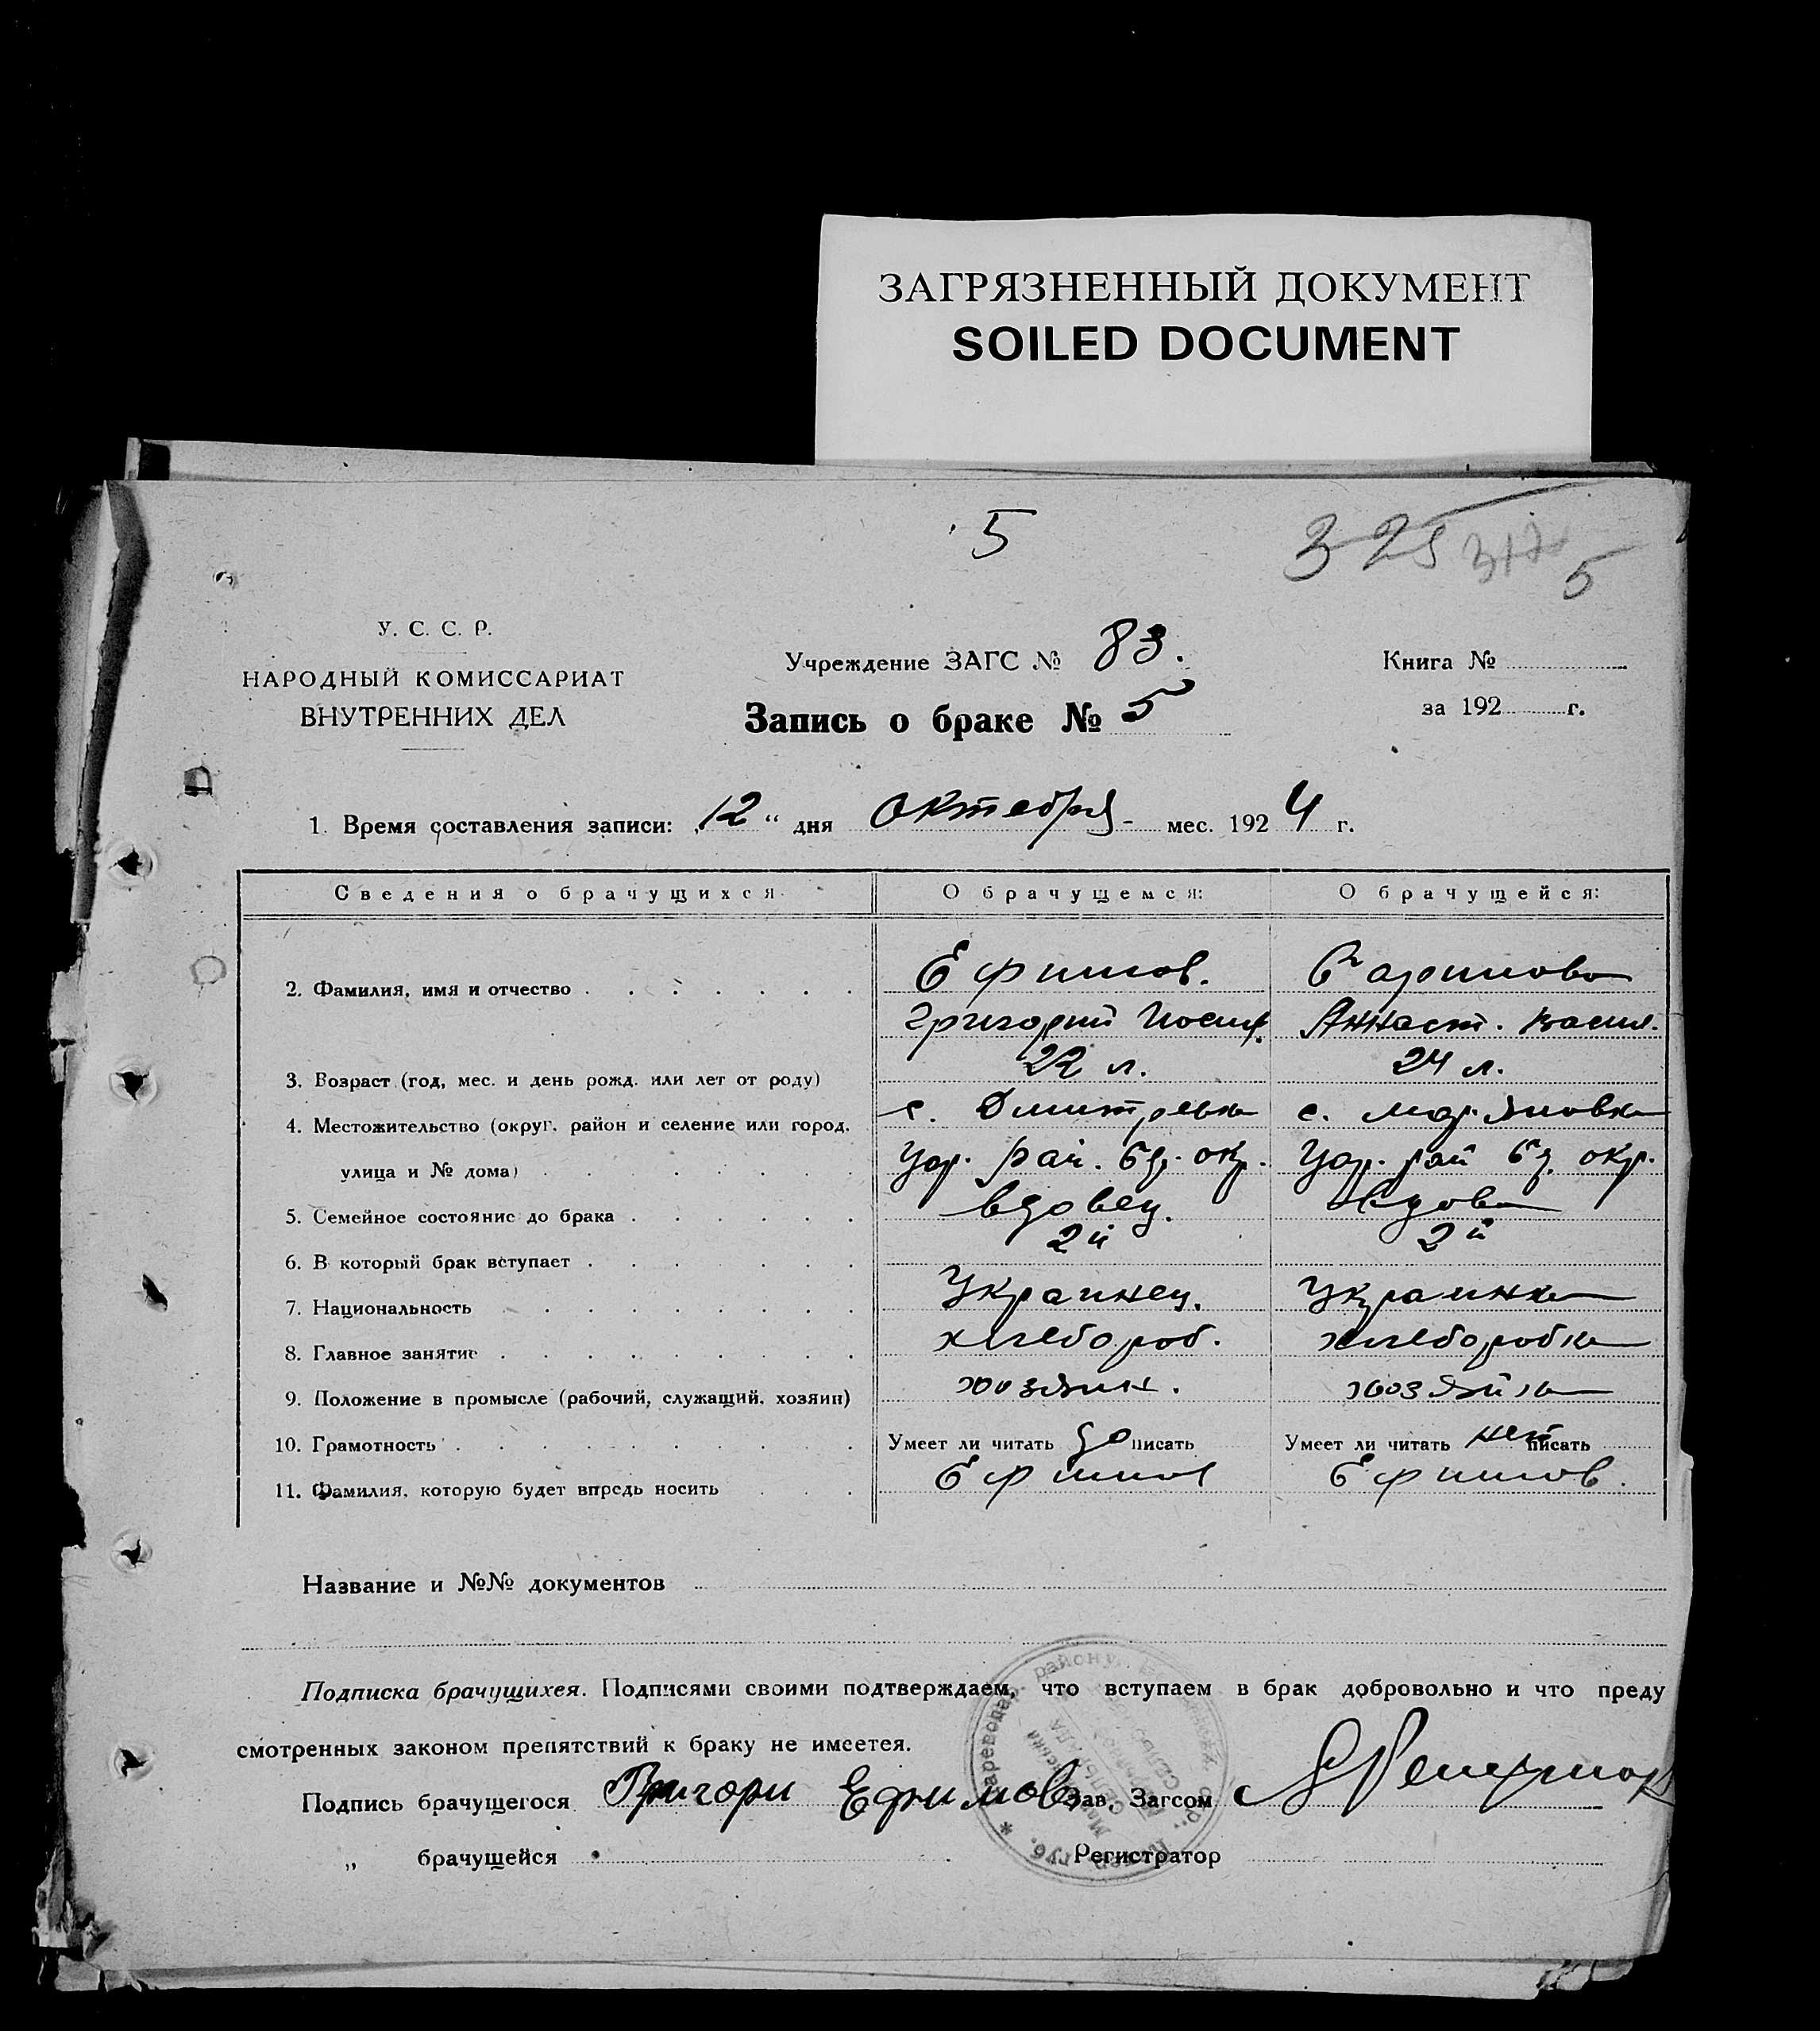 ЗАГРЯЗНЕННЫЙ ДОКУМЕНТ
SOILED DOCUMENT
5
325 317 5
У. С. С. Р.
НАРОДНЫЙ КОМИССАРИАТ
ВНУТРЕННИХ ДЕЛ
Учреждение ЗАГС № 83.
Запись о браке № 5
Книга №
за 192 г.
1. Время составления записи: „12“ дня Октебря мес. 1924 г.
Сведения о брачущихся О брачущемся: О брачущейся:
2. Фамилия, имя и отчество Ефимов.
Григорий Иосиф. Анаст. Васил.
3. Возраст (год, мес. и день рожд. или лет от роду) 22 л. 24 л.
4. Местожительство (округ, район и селение или город, с. с. Марьяновка
улица и № дома) Цар. рай. Бд. окр. Цар. рай Бд. окр.
5. Семейное состояние до брака вдовец. вдова
6. В который брак вступает 2й 2й
7. Национальность Украинец. Украинка
8. Главное занятие хлебороб. хлеборобка
9. Положение в промысле (рабочий, служащий, хозяин) хозяин. хозяйка
10. Грамотность Умеет ли читать да писать Умеет ли читать нет писать
11. Фамилия, которую будет впредь носить Ефимов Ефимов.
Название и №№ документов
Подписка брачущихся. Подписями своими подтверждаем, что вступаем в брак добровольно и что преду
смотренных законом препятствий к браку не имеется.
Подпись брачущегося Григори Ефимов Зав. Загсом
„ брачущейся Регистратор